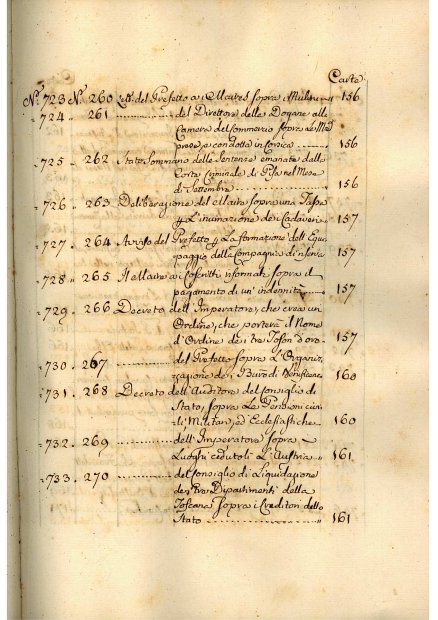 Carte
N.° 723 N. 260 Lett. del Prefetto a i Maires sopra i Mulini " 156
= 724 . 261 del Direttore delle Dogane alla
Camera del Commercio sopra le
prese a condotta in Corsica " 156
= 725 . 262 Stato Sommario delle Sentenze emanate dalla
Corte Criminale di Pisa nel Mese
di Settembre " 156
= 726 . 263 Deliberazione del Maire sopra una Tassa
p L'inumazione de i Cadaveri 157
= 727 . 264 Avviso del Prefetto p La formazione dell' Equi
paggio della Compagnia di riserva 157
= 728 " 265 Il Maire a i Coscritti riformati sopra il
pagamento di un' indennità " 157
= 729 . 266 Decreto dell' Imperatore, che crea un
Ordine, che porterà il Nome
d'Ordine de i tre Toson d'oro 157
= 730 . 267 del Prefetto sopra L'Organiz
zazione de i Burò di Beneficenza 160
= 731 . 268 Decreto dell' Auditore del Consiglio di
Stato, sopra Le Pensioni civi
li Militari, ed Ecclesiastiche 160
= 732 . 269 dell' Imperatore sopra
Luoghi ceduti L'Austria " 161
= 733 . 270 del Consiglio di Liquidazione
de i tre Dipartimenti della
Toscana sopra i Creditori dello
Stato " 161